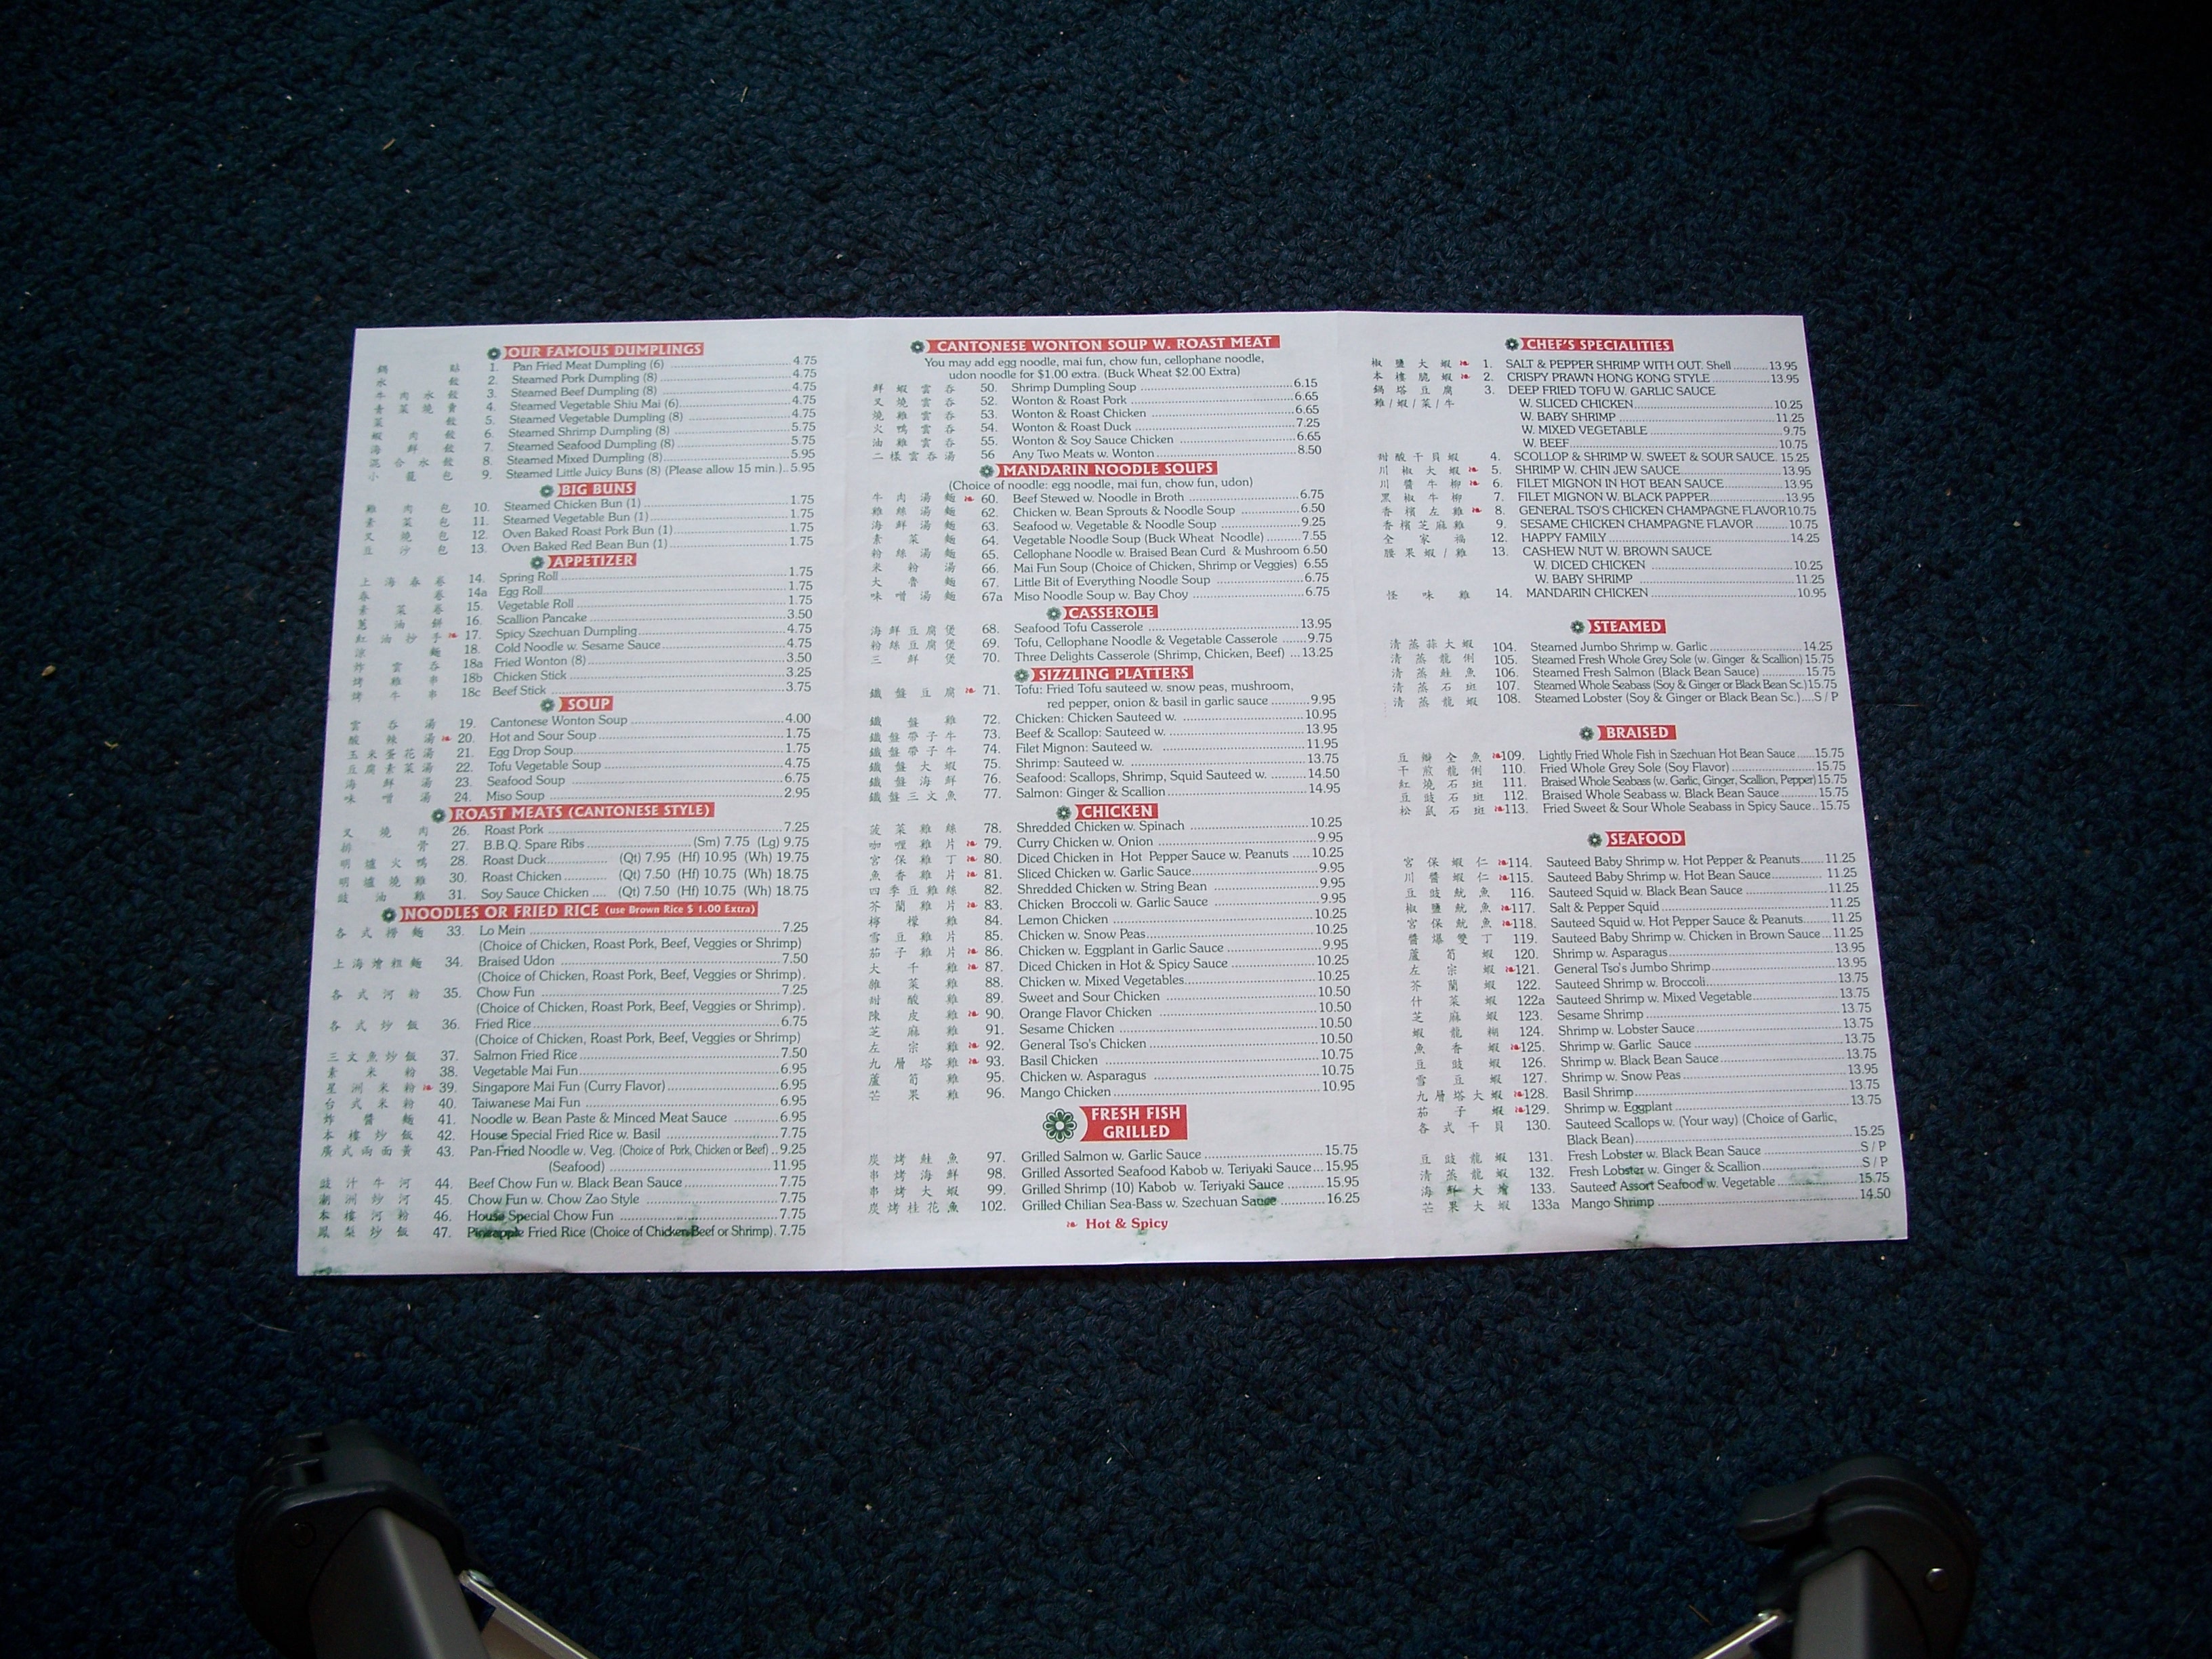 OUR FAMOUS DUMPLINGS
鍋 貼 1. Pan Fried Meat Dumpling (6) 4.75
水 餃 2. Steamed Pork Dumpling (8) 4.75
牛 肉 水 餃 3. Steamed Beef Dumpling (8) 4.75
素 菜 燒 賣 4. Steamed Vegetable Shiu Mai (6) 4.75
菜 餃 5. Steamed Vegetable Dumpling (8) 4.75
蝦 肉 餃 6. Steamed Shrimp Dumpling (8) 5.75
海 鮮 餃 7. Steamed Seafood Dumpling (8) 5.75
混 合 水 餃 8. Steamed Mixed Dumpling (8) 5.95
小 籠 包 9. Steamed Little Juicy Buns (8) (Please allow 15 min.) 5.95
BIG BUNS
雞 肉 包 10. Steamed Chicken Bun (1) 1.75
素 菜 包 11. Steamed Vegetable Bun (1) 1.75
叉 燒 包 12. Oven Baked Roast Pork Bun (1) 1.75
豆 沙 包 13. Oven Baked Red Bean Bun (1) 1.75
APPETIZER
上 海 春 卷 14. Spring Roll 1.75
春 卷 14a Egg Roll 1.75
素 菜 卷 15. Vegetable Roll 1.75
蔥 油 餅 16. Scallion Pancake 3.50
紅 油 抄 手 17. Spicy Szechuan Dumpling 4.75
涼 麵 18. Cold Noodle w. Sesame Sauce 4.75
炸 雲 吞 18a Fried Wonton (8) 3.50
烤 雞 串 18b Chicken Stick 3.25
烤 牛 串 18c Beef Stick 3.75
SOUP
雲 吞 湯 19. Cantonese Wonton Soup 4.00
酸 辣 湯 20. Hot and Sour Soup 1.75
玉 米 蛋 花 湯 21. Egg Drop Soup 1.75
豆 腐 素 菜 湯 22. Tofu Vegetable Soup 4.75
海 鮮 湯 23. Seafood Soup 6.75
味 噌 湯 24. Miso Soup 2.95
ROAST MEATS (CANTONESE STYLE)
叉 燒 肉 26. Roast Pork 7.25
排 骨 27. B.B.Q. Spare Ribs (Sm) 7.75 (Lg) 9.75
明 爐 火 鴨 28. Roast Duck (Qt) 7.95 (Hf) 10.95 (Wh) 19.75
明 爐 燒 雞 30. Roast Chicken (Qt) 7.50 (Hf) 10.75 (Wh) 18.75
豉 油 雞 31. Soy Sauce Chicken (Qt) 7.50 (Hf) 10.75 (Wh) 18.75
NOODLES OR FRIED RICE (use Brown Rice $ 1.00 Extra)
各 式 撈 麵 33. Lo Mein 7.25
(Choice of Chicken, Roast Pork, Beef, Veggies or Shrimp)
上 海 燴 粗 麵 34. Braised Udon 7.50
(Choice of Chicken, Roast Pork, Beef, Veggies or Shrimp).
各 式 河 粉 35. Chow Fun 7.25
(Choice of Chicken, Roast Pork, Beef, Veggies or Shrimp).
各 式 炒 飯 36. Fried Rice 6.75
(Choice of Chicken, Roast Pork, Beef, Veggies or Shrimp)
三 文 魚 炒 飯 37. Salmon Fried Rice 7.50
素 米 粉 38. Vegetable Mai Fun 6.95
星 洲 米 粉 39. Singapore Mai Fun (Curry Flavor) 6.95
台 式 米 粉 40. Taiwanese Mai Fun 6.95
炸 醬 麵 41. Noodle w. Bean Paste & Minced Meat Sauce 6.95
本 樓 炒 飯 42. House Special Fried Rice w. Basil 7.75
廣 式 兩 面 黃 43. Pan-Fried Noodle w. Veg. (Choice of Pork, Chicken or Beef) 9.25
(Seafood) 11.95
豉 汁 牛 河 44. Beef Chow Fun w. Black Bean Sauce 7.75
潮 洲 炒 河 45. Chow Fun w. Chow Zao Style 7.75
本 樓 河 粉 46. House Special Chow Fun 7.75
鳳 梨 炒 飯 47. Pineapple Fried Rice (Choice of Chicken Beef or Shrimp). 7.75
CANTONESE WONTON SOUP W. ROAST MEAT
You may add egg noodle, mai fun, chow fun, cellophane noodle,
udon noodle for $1.00 extra. (Buck Wheat $2.00 Extra)
鮮 蝦 雲 吞 50. Shrimp Dumpling Soup 6.15
叉 燒 雲 吞 52. Wonton & Roast Pork 6.65
燒 雞 雲 吞 53. Wonton & Roast Chicken 6.65
火 鴨 雲 吞 54. Wonton & Roast Duck 7.25
油 雞 雲 吞 55. Wonton & Soy Sauce Chicken 6.65
二 樣 雲 吞 湯 56 Any Two Meats w. Wonton 8.50
MANDARIN NOODLE SOUPS
(Choice of noodle: egg noodle, mai fun, chow fun, udon)
牛 肉 湯 麵 60. Beef Stewed w. Noodle in Broth 6.75
雞 絲 湯 麵 62. Chicken w. Bean Sprouts & Noodle Soup 6.50
海 鮮 湯 麵 63. Seafood w. Vegetable & Noodle Soup 9.25
素 菜 麵 64. Vegetable Noodle Soup (Buck Wheat Noodle) 7.55
粉 絲 湯 麵 65. Cellophane Noodle w. Braised Bean Curd & Mushroom 6.50
米 粉 湯 66. Mai Fun Soup (Choice of Chicken, Shrimp or Veggies) 6.55
大 魯 麵 67. Little Bit of Everything Noodle Soup 6.75
味 噌 湯 麵 67a Miso Noodle Soup w. Bay Choy 6.75
CASSEROLE
海 鮮 豆 腐 煲 68. Seafood Tofu Casserole 13.95
粉 絲 豆 腐 煲 69. Tofu, Cellophane Noodle & Vegetable Casserole 9.75
三 鮮 煲 70. Three Delights Casserole (Shrimp, Chicken, Beef) 13.25
SIZZLING PLATTERS
鐵 盤 豆 腐 71. Tofu: Fried Tofu sauteed w. snow peas, mushroom,
red pepper, onion & basil in garlic sauce 9.95
鐵 盤 雞 72. Chicken: Chicken Sauteed w. 10.95
鐵 盤 帶 子 牛 73. Beef & Scallop: Sauteed w. 13.95
鐵 盤 帶 子 牛 74. Filet Mignon: Sauteed w. 11.95
鐵 盤 大 蝦 75. Shrimp: Sauteed w. 13.75
鐵 盤 海 鮮 76. Seafood: Scallops, Shrimp, Squid Sauteed w. 14.50
鐵 盤 三 文 魚 77. Salmon: Ginger & Scallion 14.95
CHICKEN
菠 菜 雞 絲 78. Shredded Chicken w. Spinach 10.25
咖 喱 雞 片 79. Curry Chicken w. Onion 9.95
宮 保 雞 丁 80. Diced Chicken in Hot Pepper Sauce w. Peanuts 10.25
魚 香 雞 片 81. Sliced Chicken w. Garlic Sauce 9.95
四 季 豆 雞 絲 82. Shredded Chicken w. String Bean 9.95
芥 蘭 雞 片 83. Chicken Broccoli w. Garlic Sauce 9.95
檸 檬 雞 84. Lemon Chicken 10.25
雪 豆 雞 片 85. Chicken w. Snow Peas 10.25
茄 子 雞 片 86. Chicken w. Eggplant in Garlic Sauce 9.95
大 千 雞 87. Diced Chicken in Hot & Spicy Sauce 10.25
雜 菜 雞 88. Chicken w. Mixed Vegetables 10.25
甜 酸 雞 89. Sweet and Sour Chicken 10.50
陳 皮 雞 90. Orange Flavor Chicken 10.50
芝 麻 雞 91. Sesame Chicken 10.50
左 宗 雞 92. General Tso's Chicken 10.50
九 層 塔 雞 93. Basil Chicken 10.75
蘆 筍 雞 95. Chicken w. Asparagus 10.75
芒 果 雞 96. Mango Chicken 10.95
FRESH FISH
GRILLED
炭 烤 鮭 魚 97. Grilled Salmon w. Garlic Sauce 15.75
串 烤 海 鮮 98. Grilled Assorted Seafood Kabob w. Teriyaki Sauce 15.95
串 烤 大 蝦 99. Grilled Shrimp (10) Kabob w. Teriyaki Sauce 15.95
炭 烤 桂 花 魚 102. Grilled Chilian Sea-Bass w. Szechuan Sauce 16.25
Hot & Spicy
CHEF'S SPECIALITIES
椒 鹽 大 蝦 1. SALT & PEPPER SHRIMP WITH OUT. Shell 13.95
本 樓 脆 蝦 2. CRISPY PRAWN HONG KONG STYLE 13.95
鍋 塔 豆 腐 3. DEEP FRIED TOFU W. GARLIC SAUCE
雞 / 蝦 / 菜 / 牛 W. SLICED CHICKEN 10.25
W. BABY SHRIMP 11.25
W. MIXED VEGETABLE 9.75
W. BEEF 10.75
甜 酸 干 貝 蝦 4. SCOLLOP & SHRIMP W. SWEET & SOUR SAUCE. 15.25
川 椒 大 蝦 5. SHRIMP W. CHIN JEW SAUCE 13.95
川 醬 牛 柳 6. FILET MIGNON IN HOT BEAN SAUCE 13.95
黑 椒 牛 柳 7. FILET MIGNON W. BLACK PAPPER 13.95
香 檳 左 雞 8. GENERAL TSO'S CHICKEN CHAMPAGNE FLAVOR 10.75
香 檳 芝 麻 雞 9. SESAME CHICKEN CHAMPAGNE FLAVOR 10.75
全 家 福 12. HAPPY FAMILY 14.25
腰 果 蝦 / 雞 13. CASHEW NUT W. BROWN SAUCE
W. DICED CHICKEN 10.25
W. BABY SHRIMP 11.25
怪 味 雞 14. MANDARIN CHICKEN 10.95
STEAMED
清 蒸 蒜 大 蝦 104. Steamed Jumbo Shrimp w. Garlic 14.25
清 蒸 龍 俐 105. Steamed Fresh Whole Grey Sole (w. Ginger & Scallion) 15.75
清 蒸 鮭 魚 106. Steamed Fresh Salmon (Black Bean Sauce) 15.75
清 蒸 石 斑 107. Steamed Whole Seabass (Soy & Ginger or Black Bean Sc.) 15.75
清 蒸 龍 蝦 108. Steamed Lobster (Soy & Ginger or Black Bean Sc.) S / P
BRAISED
豆 瓣 全 魚 109. Lightly Fried Whole Fish in Szechuan Hot Bean Sauce 15.75
干 煎 龍 俐 110. Fried Whole Grey Sole (Soy Flavor) 15.75
紅 燒 石 斑 111. Braised Whole Seabass (w. Garlic, Ginger, Scallion, Pepper) 15.75
豆 豉 石 斑 112. Braised Whole Seabass w. Black Bean Sauce 15.75
松 鼠 石 斑 113. Fried Sweet & Sour Whole Seabass in Spicy Sauce 15.75
SEAFOOD
宮 保 蝦 仁 114. Sauteed Baby Shrimp w. Hot Pepper & Peanuts 11.25
川 醬 蝦 仁 115. Sauteed Baby Shrimp w. Hot Bean Sauce 11.25
豆 豉 魷 魚 116. Sauteed Squid w. Black Bean Sauce 11.25
椒 鹽 魷 魚 117. Salt & Pepper Squid 11.25
宮 保 魷 魚 118. Sauteed Squid w. Hot Pepper Sauce & Peanuts 11.25
醬 爆 雙 丁 119. Sauteed Baby Shrimp w. Chicken in Brown Sauce 11.25
蘆 筍 蝦 120. Shrimp w. Asparagus 13.95
左 宗 蝦 121. General Tso's Jumbo Shrimp 13.95
芥 蘭 蝦 122. Sauteed Shrimp w. Broccoli 13.75
什 菜 蝦 122a Sauteed Shrimp w. Mixed Vegetable 13.75
芝 麻 蝦 123. Sesame Shrimp 13.75
蝦 龍 糊 124. Shrimp w. Lobster Sauce 13.75
魚 香 蝦 125. Shrimp w. Garlic Sauce 13.75
豆 豉 蝦 126. Shrimp w. Black Bean Sauce 13.75
雪 豆 蝦 127. Shrimp w. Snow Peas 13.95
九 層 塔 大 蝦 128. Basil Shrimp 13.75
茄 子 蝦 129. Shrimp w. Eggplant 13.75
各 式 干 貝 130. Sauteed Scallops w. (Your way) (Choice of Garlic,
Black Bean) 15.25
豆 豉 龍 蝦 131. Fresh Lobster w. Black Bean Sauce S / P
清 蒸 龍 蝦 132. Fresh Lobster w. Ginger & Scallion S / P
海 鮮 大 燴 133. Sauteed Assort Seafood w. Vegetable 15.75
芒 果 大 蝦 133a Mango Shrimp 14.50